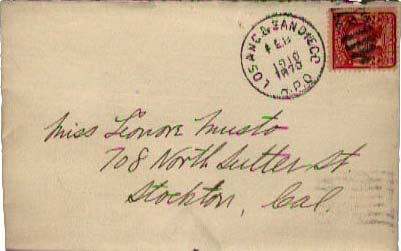 LOS ANG. & SAN DIEGO
FEB
1910
R.P.O.
Miss Leonore Musto
708 North Sutter St.
Stockton, Cal.